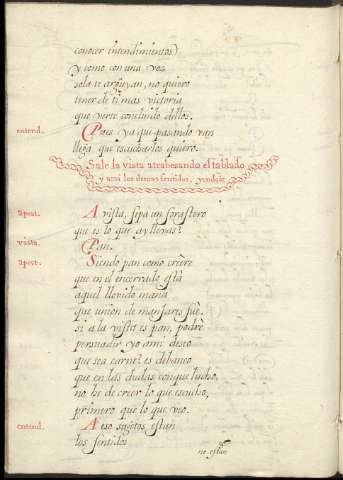 conocer intendimientos)
y como con una voz
sola te arguyan, no quiero
tener de ti mas victoria
que verte concluido dellos.
entend. Pues ya que pasando van
llega que escucharlos quiero.
Sale la vista atrabesando el tablado
y assi los demas sentidos, yendose
apost. A vista, sepa un forastero
que es lo que ay lleuas?
vista. Pan.
apost. Siendo pan como crière
que en el encerrado està
aquel llouido manà
que union de manjares fuè.
si a la vista es pan, podrè
persuadir yo a mi deseo
que sea carne? es debaneo
que en las dudas con que lucho,
no he de creer lo que escucho,
primero que lo que veo.
entend. A eso sugetos estan
los sentidos
no estan